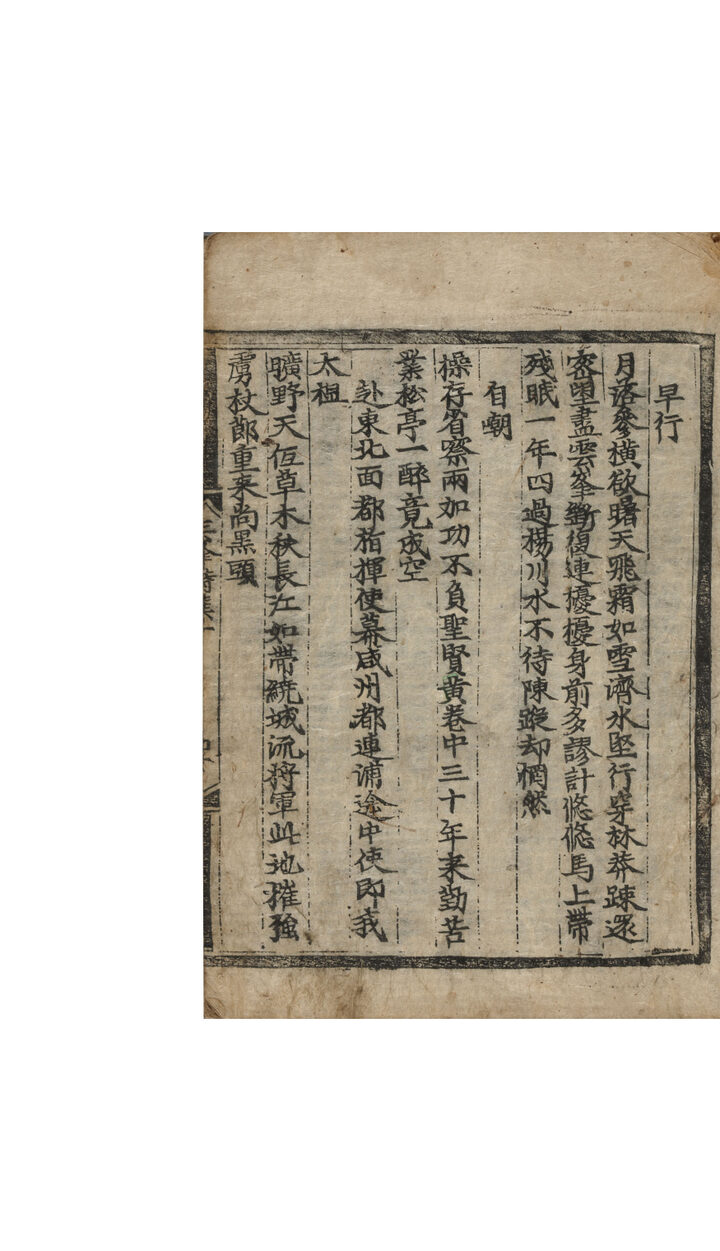 早行
月落參橫欲曙天飛霜如雪濟水堅行穿林莽踈還
密望盡雲峯斷復連擾擾身前多謬計悠悠馬上帶
殘眠一年四過楊川水不待陳蹤却惘然
自嘲
操存省察兩加功不負聖賢黃卷中三十年來勤苦
業松亭一醉竟成空
赴東北面都指揮使幕咸州都連浦途中使即我
太祖
曠野天低草木秋長江如帶繞城流將軍此地摧強
虜杖鄭重來尚黑頭
三峯詩集一